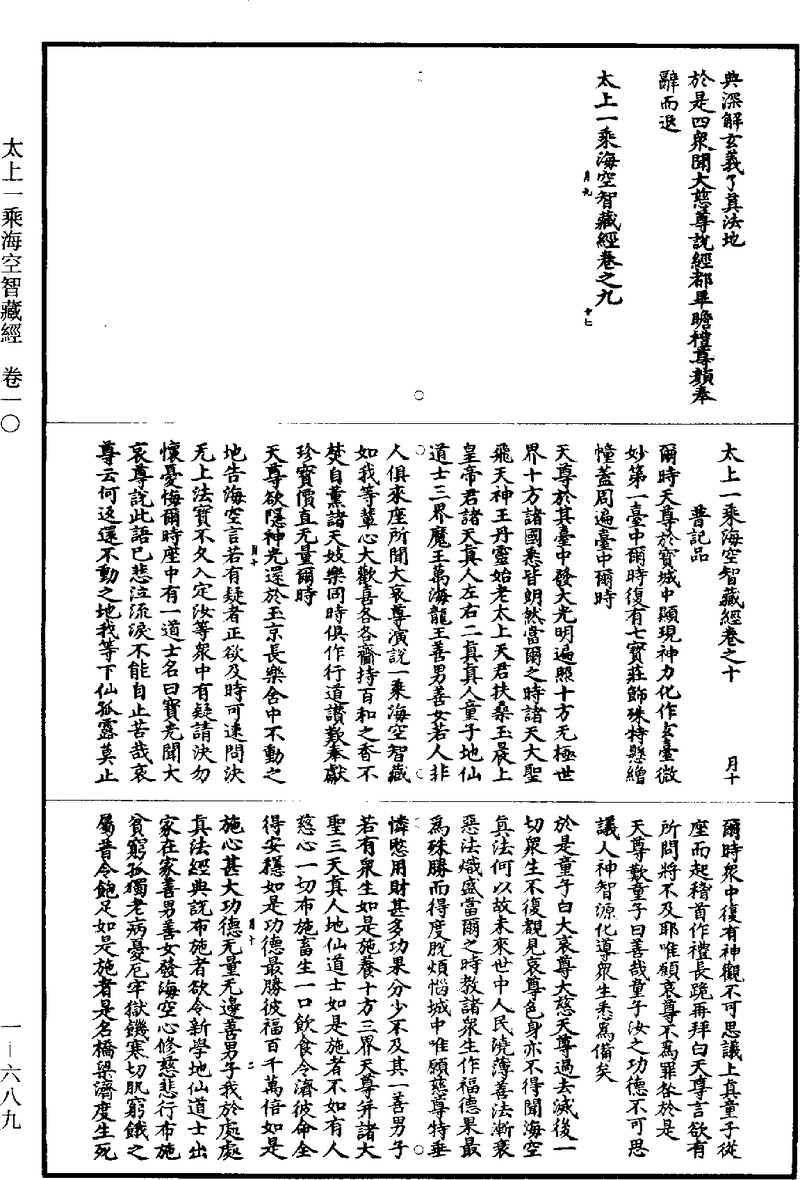 太上一乘海空智藏經　卷一〇
一—六八九
典深解玄義了真法地
於是四衆聞大慈尊說經都畢瞻禮尊顏奉
辭而退
太上一乘海空智藏經卷之九
月九
十七
太上一乘海空智藏經卷之十
月十
普記品
爾時天尊於寶城中顯現神力化作玄臺微
妙第一臺中爾時復有七寶莊飾殊特懸繒
幢蓋周遍臺中爾時
天尊於其臺中發大光明遍照十方无極世
界十方諸國悉皆朗然當爾之時諸天大聖
飛天神王丹靈始老太上天君扶桑玉晨上
皇帝君諸天真人左右二真真人童子地仙
道士三界魔王萬海龍王善男善女若人非
人俱來座所聞大哀尊演說一乘海空智藏
如我等輩心大歡喜各各齎持百和之香不
焚自薰諸天妓樂同時俱作行道讚歎奉獻
珍寶價直无量爾時
天尊欲隱神光還於玉京長樂舍中不動之
月十
地告海空言若有疑者正欲及時可速問決
无上法寶不久入定汝等衆中有疑請決勿
懷憂悔爾時座中有一道士名曰寶光聞大
哀尊說此語已悲泣流淚不能自止苦哉哀
尊云何返還不動之地我等下仙孤露莫止
爾時衆中復有神觀不可思議上真童子從
座而起稽首作禮長跪再拜白天尊言欲有
所問將不及耶唯願哀尊不為罪咎於是
天尊歎童子曰善哉童子汝之功德不可思
議人神智源化導衆生悉為備矣
於是童子白大哀尊大慈天尊過去滅後一
切衆生不復覩見哀尊色身亦不得聞海空
真法何以故未來世中人民澆薄善法漸衰
惡法熾盛當爾之時教諸衆生作福德果最
為殊勝而得度脫煩惱城中唯願慈尊特垂
憐愍用財甚多功果分少不及其一善男子
若有衆生如是施養十方三界天尊并諸大
聖三天真人地仙道士如是施者不如有人
慈心一切布施畜生一口飲食令濟彼命全
得安穩如是功德最勝彼福百千萬倍如是
月十
二
施心甚大功德无量无邊善男子我於處處
真法經典說布施者欲令新學地仙道士出
家在家善男善女發海空心修慈悲行布施
貧窮孤獨老病憂厄牢獄饑寒切肌窮餓之
屬普令飽足如是施者是名橋梁濟度生死